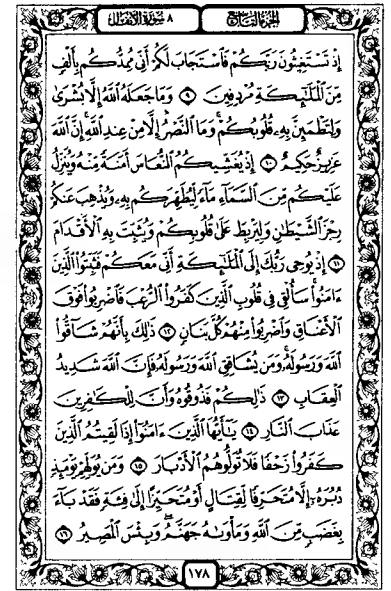 الجزء التاسع ٨ سورة الأنفال
إِذْ تَسْتَغِيثُونَ رَبَّكُمْ فَاسْتَجَابَ لَكُمْ أَنِّي مُمِدُّكُم بِأَلْفٍ
مِّنَ الْمَلَائِكَةِ مُرْدِفِينَ ٩ وَمَا جَعَلَهُ اللَّهُ إِلَّا بُشْرَىٰ
وَلِتَطْمَئِنَّ بِهِ قُلُوبُكُمْ وَمَا النَّصْرُ إِلَّا مِنْ عِندِ اللَّهِ إِنَّ اللَّهَ
عَزِيزٌ حَكِيمٌ ١٠ إِذْ يُغَشِّيكُمُ النُّعَاسَ أَمَنَةً مِّنْهُ وَيُنَزِّلُ
عَلَيْكُم مِّنَ السَّمَاءِ مَاءً لِّيُطَهِّرَكُم بِهِ وَيُذْهِبَ عَنكُمْ
رِجْزَ الشَّيْطَانِ وَلِيَرْبِطَ عَلَىٰ قُلُوبِكُمْ وَيُثَبِّتَ بِهِ الْأَقْدَامَ
١١ إِذْ يُوحِي رَبُّكَ إِلَى الْمَلَائِكَةِ أَنِّي مَعَكُمْ فَثَبِّتُوا الَّذِينَ
ءَامَنُوا سَأُلْقِي فِي قُلُوبِ الَّذِينَ كَفَرُوا الرُّعْبَ فَاضْرِبُوا فَوْقَ
الْأَعْنَاقِ وَاضْرِبُوا مِنْهُمْ كُلَّ بَنَانٍ ١٢ ذَٰلِكَ بِأَنَّهُمْ شَاقُّوا
اللَّهَ وَرَسُولَهُ وَمَن يُشَاقِقِ اللَّهَ وَرَسُولَهُ فَإِنَّ اللَّهَ شَدِيدُ
الْعِقَابِ ١٣ ذَٰلِكُمْ فَذُوقُوهُ وَأَنَّ لِلْكَافِرِينَ
عَذَابَ النَّارِ ١٤ يَاأَيُّهَا الَّذِينَ ءَامَنُوا إِذَا لَقِيتُمُ الَّذِينَ
كَفَرُوا زَحْفًا فَلَا تُوَلُّوهُمُ الْأَدْبَارَ ١٥ وَمَن يُوَلِّهِمْ يَوْمَئِذٍ
دُبُرَهُ إِلَّا مُتَحَرِّفًا لِّقِتَالٍ أَوْ مُتَحَيِّزًا إِلَىٰ فِئَةٍ فَقَدْ بَاءَ
بِغَضَبٍ مِّنَ اللَّهِ وَمَأْوَاهُ جَهَنَّمُ وَبِئْسَ الْمَصِيرُ ١٦
١٧٨